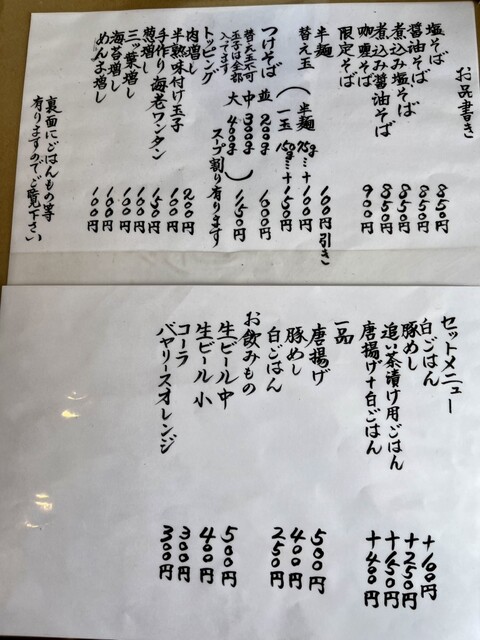 お品書き
塩そば 850円
醤油そば 850円
煮込み塩そば 850円
煮込み醤油そば 850円
咖喱そば 900円
限定そば
半麺 100円引き
替え玉 (半麺 75g…+100円
一玉 150g…+150円)
つけそば 並 200g 1000円
替え玉不可 中 300g
玉子は全部 大 400g 1150円
入ってます スープ割り有ります
トッピング
肉増し 200円
半熟味付け玉子 100円
手作り 海老ワンタン 150円
葱増し 100円
三ッ葉増し 100円
海苔増し 100円
めんま増し 100円
裏面にごはんもの等
有りますのでご覧下さい
セットメニュー
白ごはん +100円
豚めし +250円
追い茶漬け用ごはん +150円
唐揚げ+白ごはん +400円
一品
唐揚げ 500円
豚めし 400円
白ごはん 250円
お飲みもの
生ビール中 500円
生ビール 小 400円
コーラ 300円
バヤリースオレンジ 300円